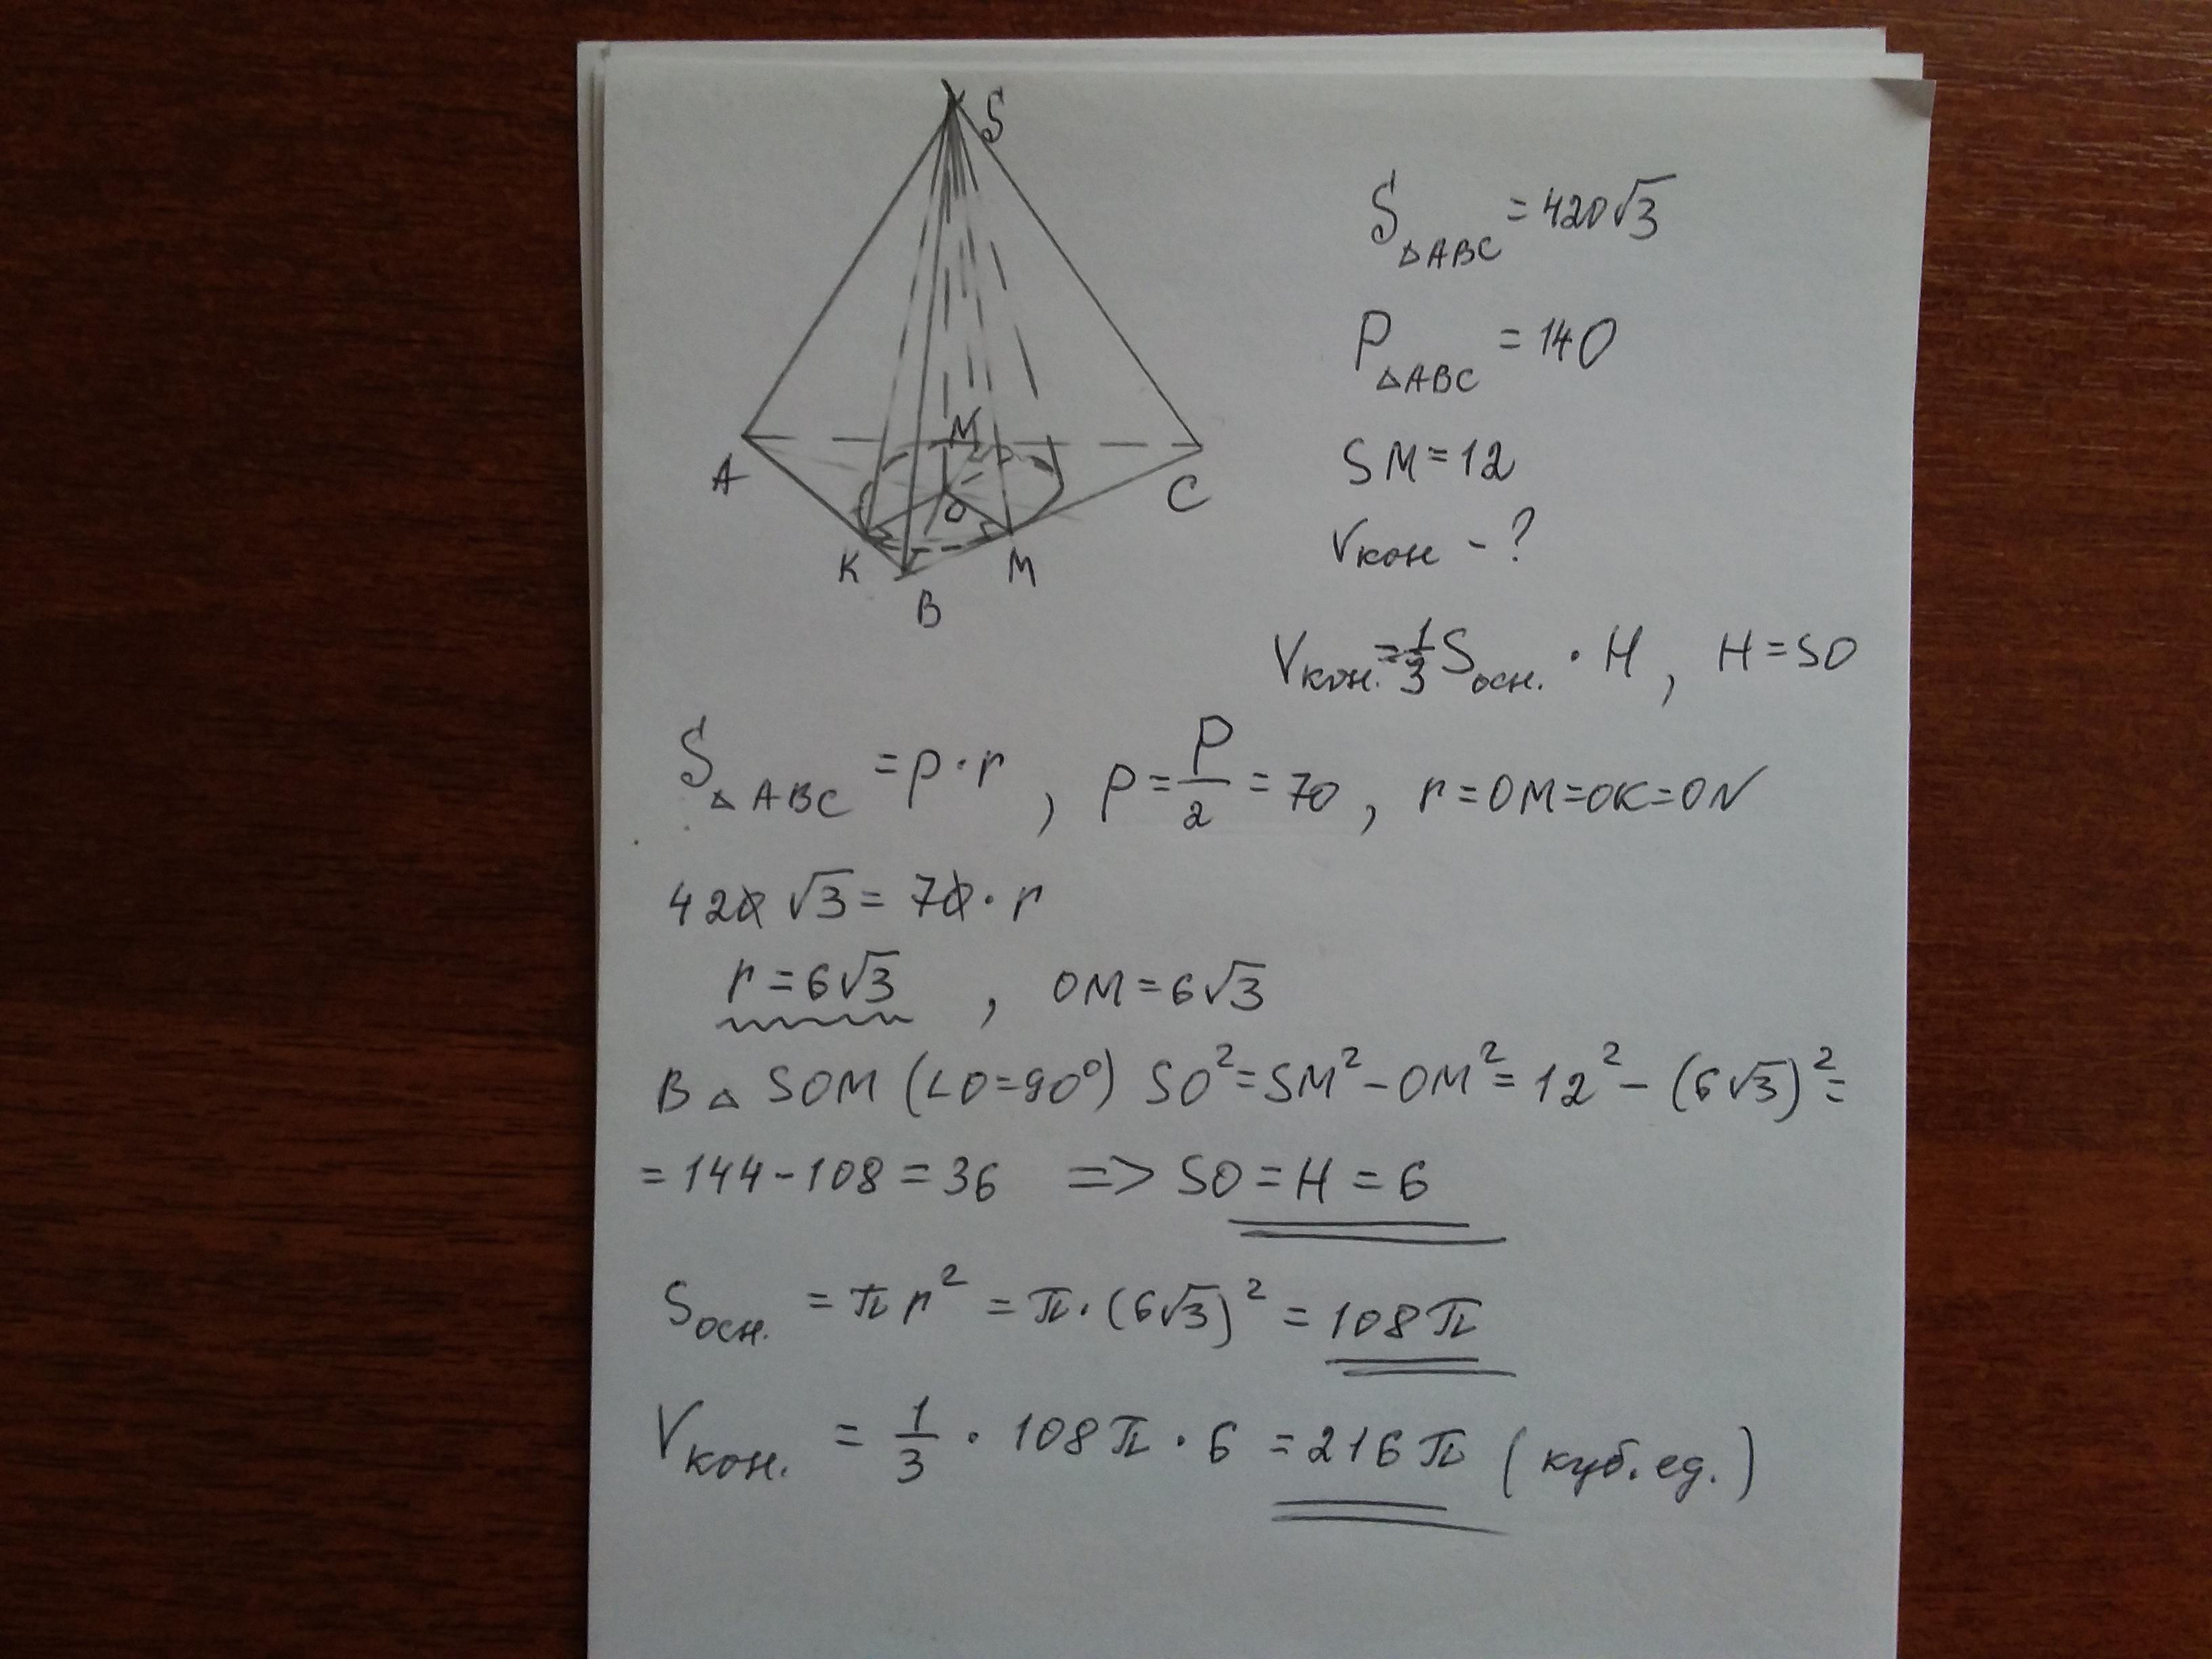 S
M
A
O
C
K
M
B
S△ABC = 420√3
P△ABC = 140
SM = 12
Vкон - ?
Vкон. = 1/3 Sосн. · H, H = SO
S△ABC = p · r, p = P/2 = 70, r = OM = OK = ON
420 √3 = 70 · r
r = 6√3, OM = 6√3
В △ SOM (∠O = 90°) SO² = SM² - OM² = 12² - (6√3)² =
= 144 - 108 = 36 => SO = H = 6
Sосн. = πr² = π · (6√3)² = 108π
Vкон. = 1/3 · 108π · 6 = 216π (куб. ед.)